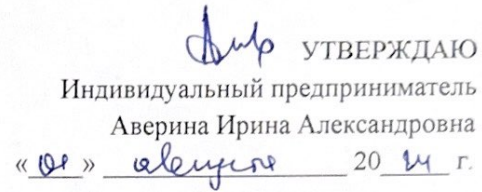 УТВЕРЖДАЮ
Индивидуальный предприниматель
Аверина Ирина Александровна
«01» августа 2024 г.